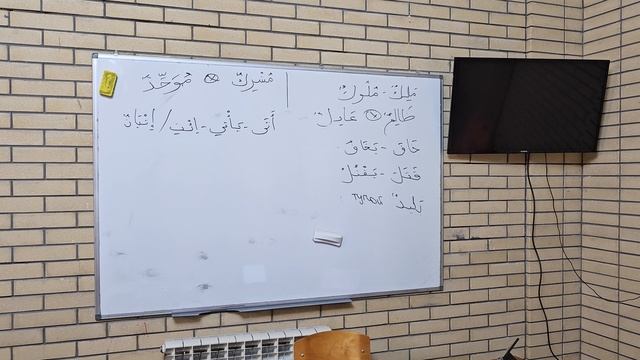 مَلِكٌ - مُلُوكٌ
ظَالِمٌ ⊗ عَادِلٌ
خَافَ - يَخَافُ
قَتَلَ - يَقْتُلُ
بَلِيدٌ тупой
مُشْرِكٌ ⊗ مُوَحِّدٌ
أَتَى - يَأْتِي - اِئْتِ / إِتْيَانٌ